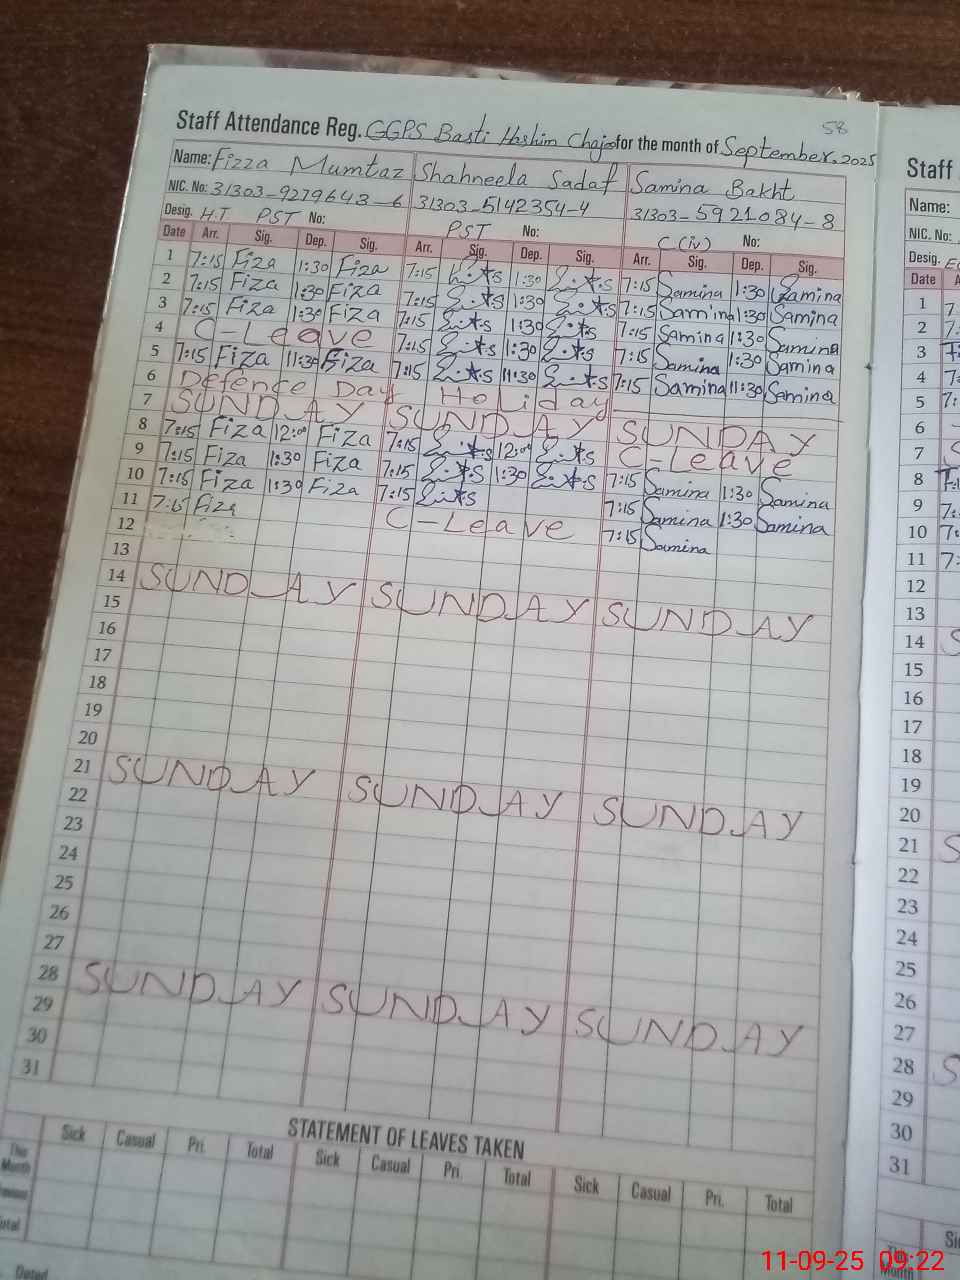 58
Staff Attendance Reg. GGPS Basti Hashim Chajo for the month of September. 2025
Name: Fizza Mumtaz Shahneela Sadaf Samina Bakht
NIC. No: 31303-9279643-6 31303-5142354-4 31303-5921084-8
Desig. H.T. PST No: PST No: C (iv) No:
Date Arr. Sig. Dep. Sig. Arr. Sig. Dep. Sig. Arr. Sig. Dep. Sig.
1 7:15 Fiza 1:30 Fiza 7:15 1:30 7:15 Samina 1:30 Samina
2 7:15 Fiza 1:30 Fiza 7:15 1:30 7:15 Samina 1:30 Samina
3 7:15 Fiza 1:30 Fiza 7:15 1:30 7:15 Samina 1:30 Samina
4 C-Leave 7:15 1:30 7:15 Samina 1:30 Samina
5 7:15 Fiza 11:30 Fiza 7:15 11:30 7:15 Samina 11:30 Samina
6 Defence Day Holiday
7 SUNDAY SUNDAY SUNDAY
8 7:15 Fiza 12:00 Fiza 7:15 12:00 C-Leave
9 7:15 Fiza 1:30 Fiza 7:15 1:30 7:15 Samina 1:30 Samina
10 7:15 Fiza 1:30 Fiza 7:15 7:15 Samina 1:30 Samina
11 7:15 Fiza C-Leave 7:15 Samina
12
13
14 SUNDAY SUNDAY SUNDAY
15
16
17
18
19
20
21 SUNDAY SUNDAY SUNDAY
22
23
24
25
26
27
28 SUNDAY SUNDAY SUNDAY
29
30
31
STATEMENT OF LEAVES TAKEN
Sick Casual Pri. Total Sick Casual Pri. Total Sick Casual Pri. Total
This Month
Dated
Staff
Name:
NIC. No:
Desig.
Date
1
2
3
4
5
6
7
8
9
10
11
12
13
14
15
16
17
18
19
20
21
22
23
24
25
26
27
28
29
30
31
Month
11-09-25 09:22